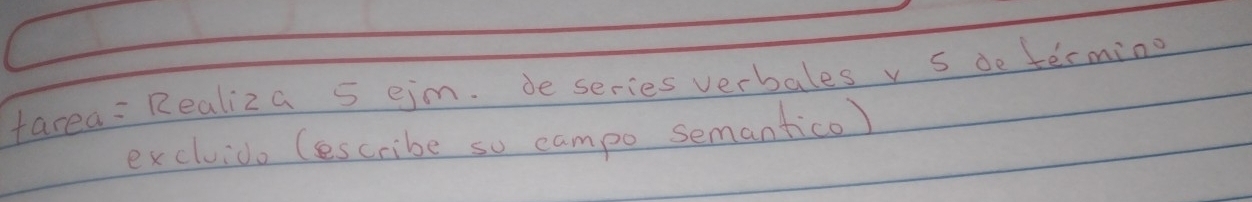 tarea = Realiza 5 ejm. de series verbales y 5 de término
excluido (escribe su campo semantico)